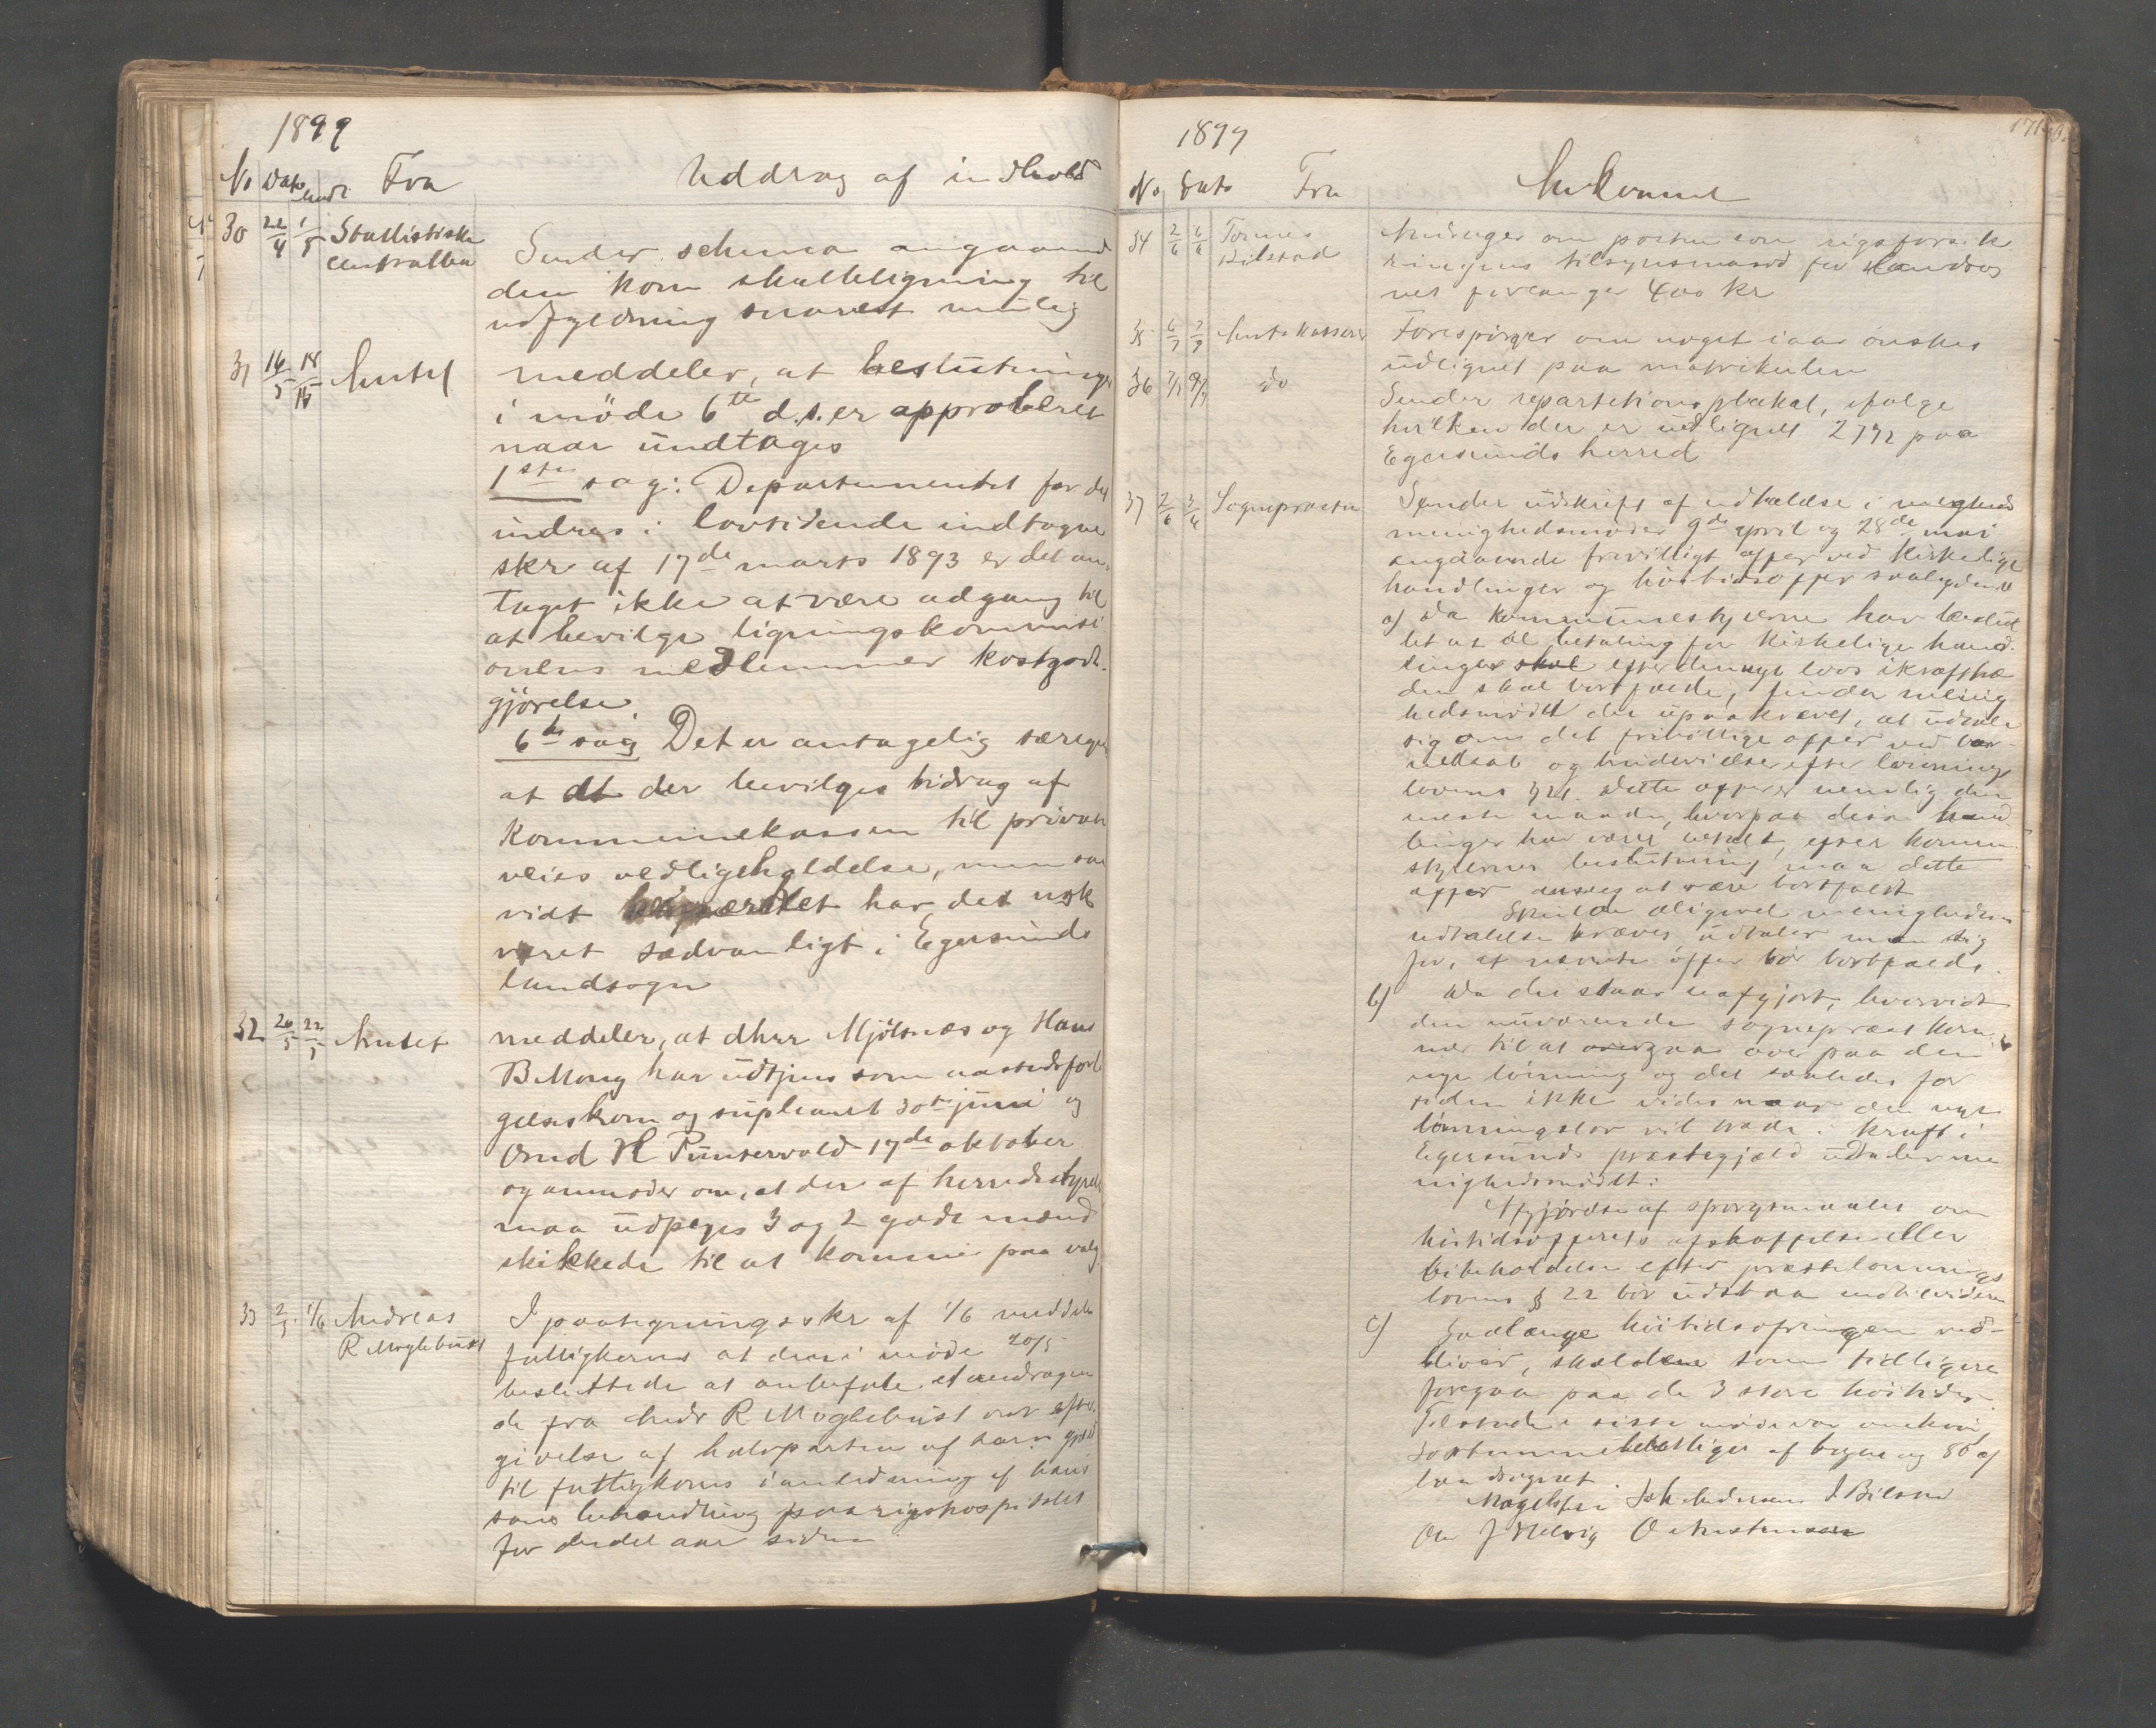 1899
No Dato Indk Fra Uddrag af indhold
30 22/4 1/5 Stattistiske centralbu
Sender schema angaaend
den kom skatteligning til
udfyldning snarest mulig
31 16/5 18/5 Amtet
meddeler, at beslutninger
i møde 6te d.s. er approberet
naar undtages
1ste sag: Departementet for det
indres i lovtidende indtagne
skr af 17de marts 1893 er det an-
taget ikke at være adgang til
at bevilge ligningskommisi
onens medlemmer kostgodt-
gjørelse.
6te sag Det er antagelig
at der bevilges bidrag af
kommunekassen til private
veies vedligeholdelse, men saa
vidt har det nok
været sædvanligt i Egersunds
landsogn
32 20/5 22/5 Amtet
meddeler, at dhrr Mjølsnæs og Hans
B Mong har udtjent som forl
gelseskom og supleant 30te juni og
Omd H Puntervold 17de oktober
og anmoder om, at der af herredsstyret
maa udpeges 3 og 2 gode mænd
skikkede til at komme paa valg
33 2/5 1/6 Andreas
R Møglebust
I paategningsskr af 1/6 meddeler
fattigkoms at den i møde 20/5
besluttede at anbefale et andragen
de fra Andr R Møglebust om efter-
givelse af halvparten af hans gjæld
til fattigkoms i anledning af hans
søns behandling paa rigshospitalet
for endel aar siden
1899
No Dato Fra Ankommet
34 2/6 6/6 Tønnes
Kilstad
Andrager om posten som rigsforsik
ringens tilsynsmand for Landsog
net forlanger 400 kr
35 6/7 7/7 Amtskasserer
Forespørger om noget i aar ønskes
udlignet paa matrikulen
36 7/7 9/7 do
Sender repartitionsplakat, ifølge
hvilken der er udlignet 2792 paa
Egersunds herred
37 2/6 3/6 Sognepresten
Sender udskrift af udtalelse i
menighedsmøder 9de april og 28de mai
angaaende frivilligt offer ved kirkelige
handlinger og høitidsoffer saalydende
a) Da kommunestyrerne har beslut
tet at al betaling for kirkelige hand-
linger skal efter den nye lovs ikrafttræ
den skal bortfalde, finder menig
hedsmødet det upaakrævet, at udtale
sig om det frivillige offer ved bar-
nedaab og brudevielser efter lønnings
lovens § 21. Dette offer er nemlig den
neste maade, hvorpaa disse hand-
linger har været betalt, efter komm-
styrernes beslutning maa dette
offer ansees at være bortfaldt
Skulde aligevel menighedens
udtalelse kræves udtaler man sig
for, at nævnte offer bør bortfalde.
b) Da det staar uafgjort, hvorvidt
den nuværende sogneprest kom-
mer til at gaa over paa den
nye lønning og det saaledes for
tiden ikke vides naar den nye
lønningslov vil træde i kraft i
Egersunds præstegjæld udtaler me
nighedsmødet:
Afgjørelse af spørgsmaalet om
høitidsofferets afskaffelse eller
bibeholdelse efter præstelønnings
lovens § 22 bør udstaa indtil videre
c) Saalænge høitidsofringen ved-
bliver, skal den som tidligere
foregaa paa de 3 store høitider
Tilstede i siste møde var
stemmeberettiger af byen og 86 af
landsognet
Joh Andersen J Bilstad
Ole J Helvig O Christensen